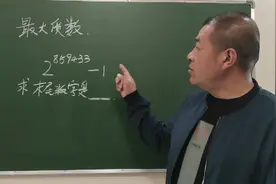 最大质数.
2^859433 -1
求末尾数字是___